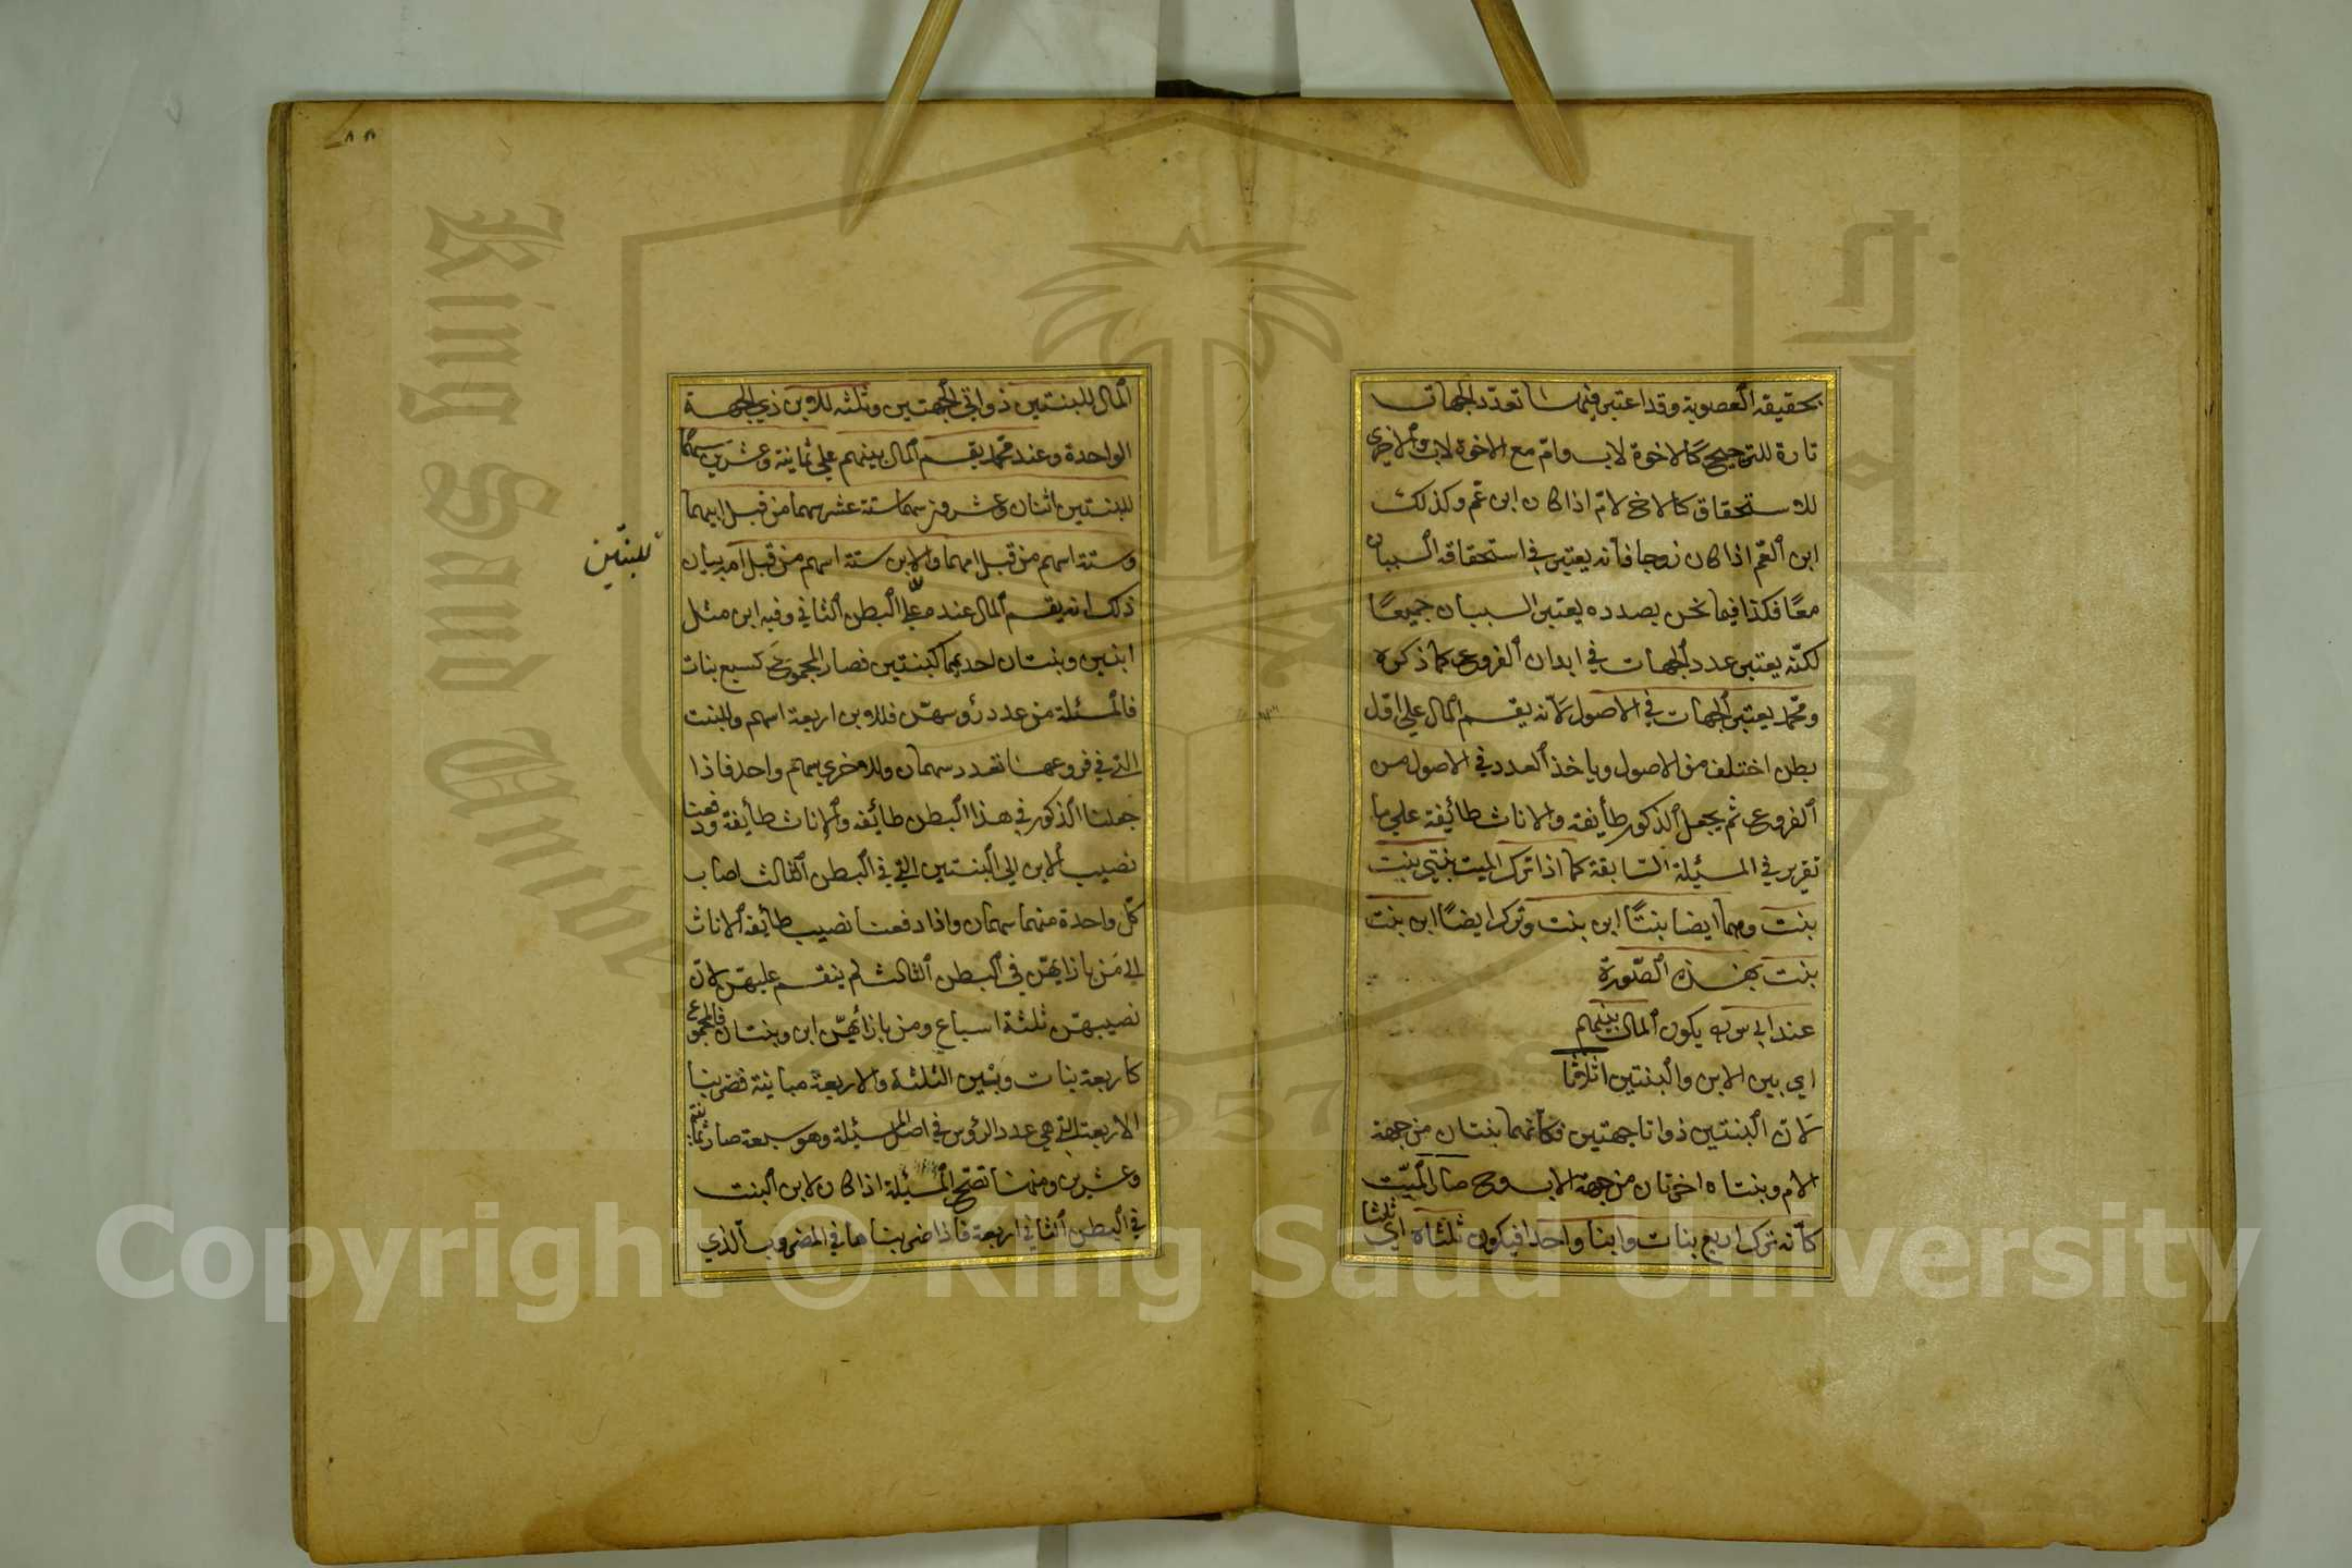 بحقيقة العصوبة وقد اعتبر فيها تعدد الجهات
تارة للترجيح كالاخوة لاب وام مع الاخوة لاب والاخرى
للاستحقاق كالاخ لام اذا كان ابن عم وكذلك
ابن العم اذا كان زوجا فانه يعتبر في استحقاقه السببان
معًا فكذا فيما نحن بصدده يعتبر السببان جميعًا
لكنّه يعتبر عدد الجهات في ابدان الفروع كما ذكره
ومحمد يعتبر الجهات في الاصول لانه يقسم المال على اقل
بطن اختلف من الاصول وياخذ العدد في الاصول من
الفروع ثم يجعل الذكور طائفة والاناث طائفة على ما
تقرير في المسئلة السابقة كما اذا ترك الميت بنتي بنت
بنت وهما ايضا بنتًا ابن بنت وترك ايضًا ابن بنت
بنت بهذه الصّورة
عند ابي يوسف يكون المال بينهم
اي بين الابن والبنتين اثلاثا
لان البنتين ذواتا جهتين فكأنهما بنتان من جهة
الام وبنتاه اخرتان من جهة الاب وح صار الميّت
كأنه ترك اربع بنات وابنا واحدا فيكون ثلثاه اي ثلثا
٨٨
المال للبنتين ذواتي الجهتين وثلثه للابن ذي الجهة
الواحدة وعند محمد يقسم المال بينهم على ثمانية وعشرين سهمًا
للبنتين اثنان وعشرون سهما ستة عشر سهما من قبل ابيهما
وستة اسهم من قبل امهما وللابن ستة اسهم من قبل امه بيان
للبنتين
ذلك انه يقسم المال عند محمد على البطن الثاني وفيه ابن مثل
ابنين وبنتان احديهما كبنتين فصار المجموع ح كسبع بنات
فالمسئلة من عدد رؤسهن فللابن اربعة اسهم وللبنت
التي في فروعها تعدد سهمان وللاخرى سهم واحد فاذا
جعلنا الذكور في هذا البطن طائفة والاناث طائفة ودفعنا
نصيب الابن الى البنتين التي في البطن الثالث اصاب
كل واحدة منهما سهمان واذا دفعنا نصيب طائفة الاناث
الى من بازائهن في البطن الثالث لم ينقسم عليهن لان
نصيبهن ثلثة اسباع ومن بازائهن ابن وبنتان فالمجموع
كاربعة بنات وبين الثلثة والاربعة مباينة فضربنا
الاربعة التي هي عدد الرؤس في اصل المسئلة وهو سبعة صار ثمانية
وعشرين ومنها تصح المسئلة اذا كان لابن البنت
في البطن الثاني اربعة فاذا ضربناها في المضروب الذي
Copyright © King Saud University
King Saud University
1957